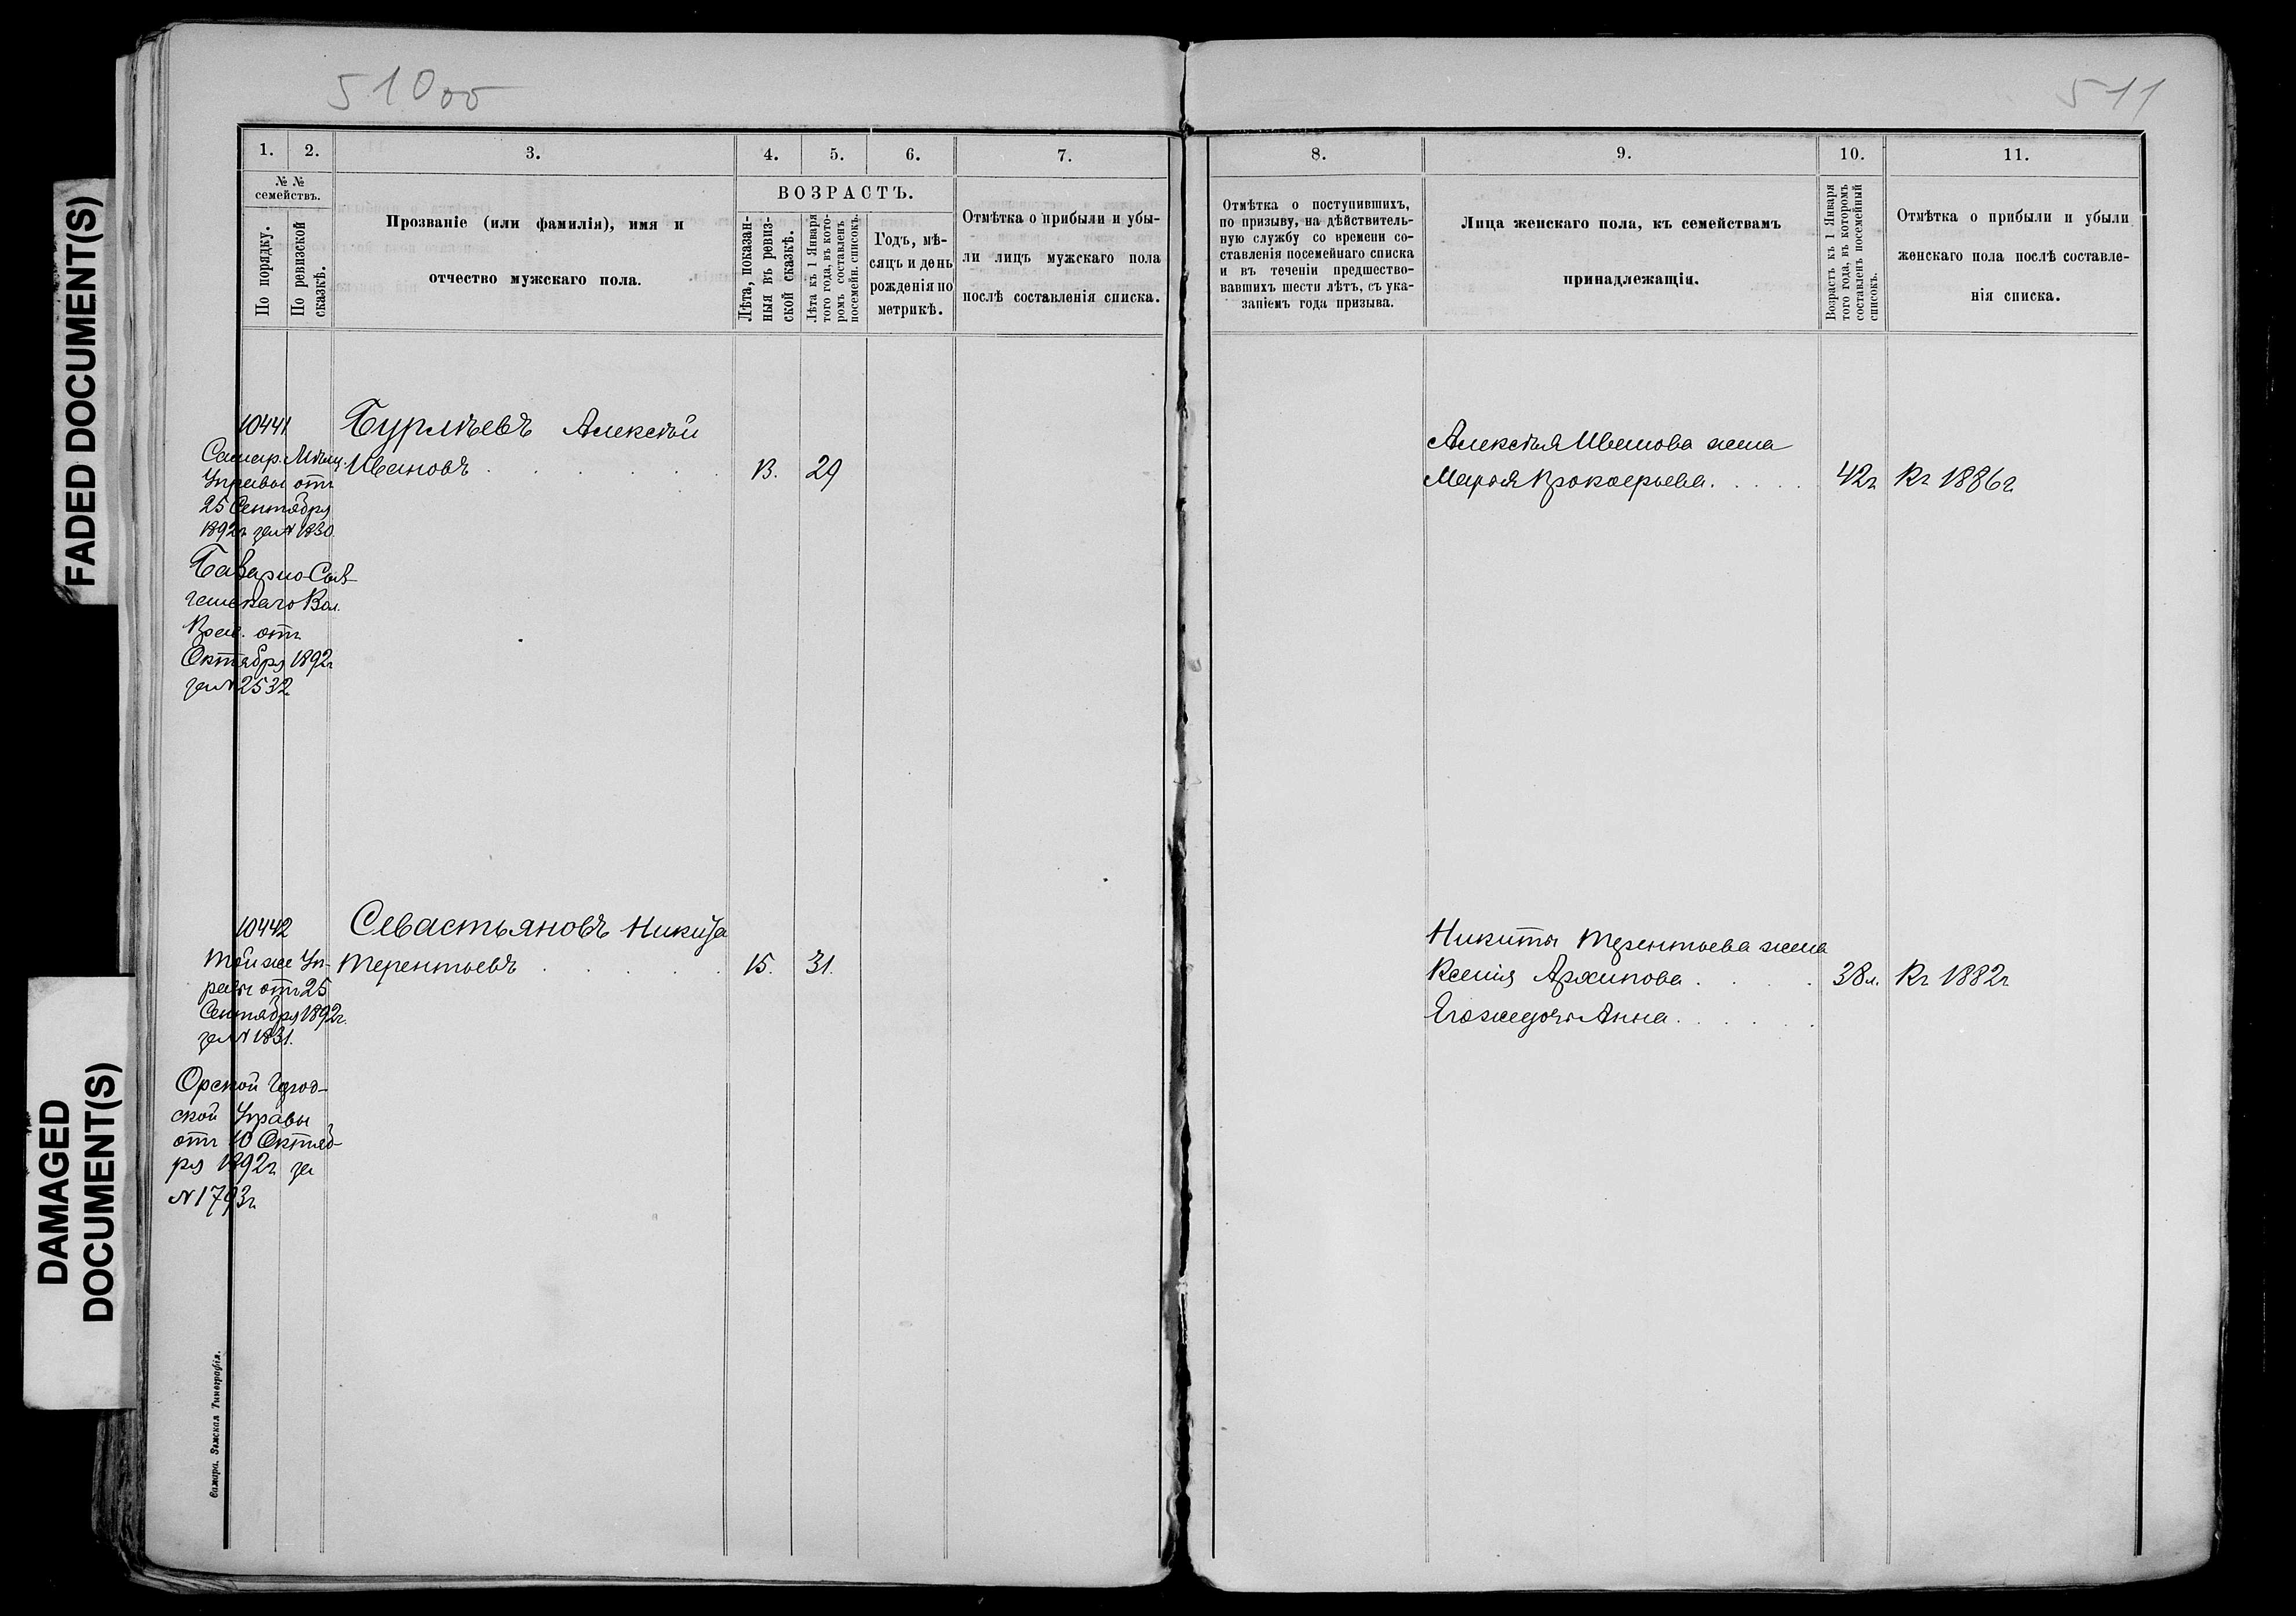 510 об
511
1.
2.
3.
4.
5.
6.
7.
8.
9.
10.
11.
№ №
семействъ.
По порядку.
По ревизской
сказкѣ.
Прозваніе (или фамилія), имя и
отчество мужскаго пола.
ВОЗРАСТЪ.
Лѣта, показан-
ныя въ ревиз-
ской сказкѣ.
Лѣта къ 1 Января
того года, въ кото-
ромъ составленъ
посемейн. списокъ.
Годъ, мѣ-
сяцъ и день
рожденія по
метрикѣ.
Отмѣтка о прибыли и убы-
ли лицъ мужскаго пола
послѣ составленія списка.
Отмѣтка о поступившихъ,
по призыву, на дѣйствитель-
ную службу со времени со-
ставленія посемейнаго списка
и въ теченіи предшество-
вавшихъ шести лѣтъ, съ ука-
заніемъ года призыва.
Лица женскаго пола, къ семействамъ
принадлежащія.
Возрастъ къ 1 Января
того года, въ которомъ
составленъ посемейный
списокъ.
Отмѣтка о прибыли и убыли
женскаго пола послѣ составле-
нія списка.
10441
Самар. Мѣщ.
Управы отъ
25 Сентября
1892г за № 1830.
Вол.
Прав. отъ
Октября 1892г
за № 2532
Бурлѣевъ Алексѣй
Ивановъ . . . . . . 13. 29
Алексѣя Иванова жена
Марья Прокофьева. . . . . 42г Къ 1886г
10442
Той же Уп-
равы отъ 25
Сентября 1892г.
за № 1831.
Орской Город-
ской Управы
отъ 10 Октяб-
ря 1892г за
№ 1793г
Севастьяновъ Никита
Терентьевъ . . . . . 15. 31.
Никиты Терентьева жена
Ксенія Архипова . . . . 38л. Къ 1882г
Его же дочь Анна . . . . . .
Самара. Земская Типографія.
FADED DOCUMENT(S)
DAMAGED
DOCUMENT(S)